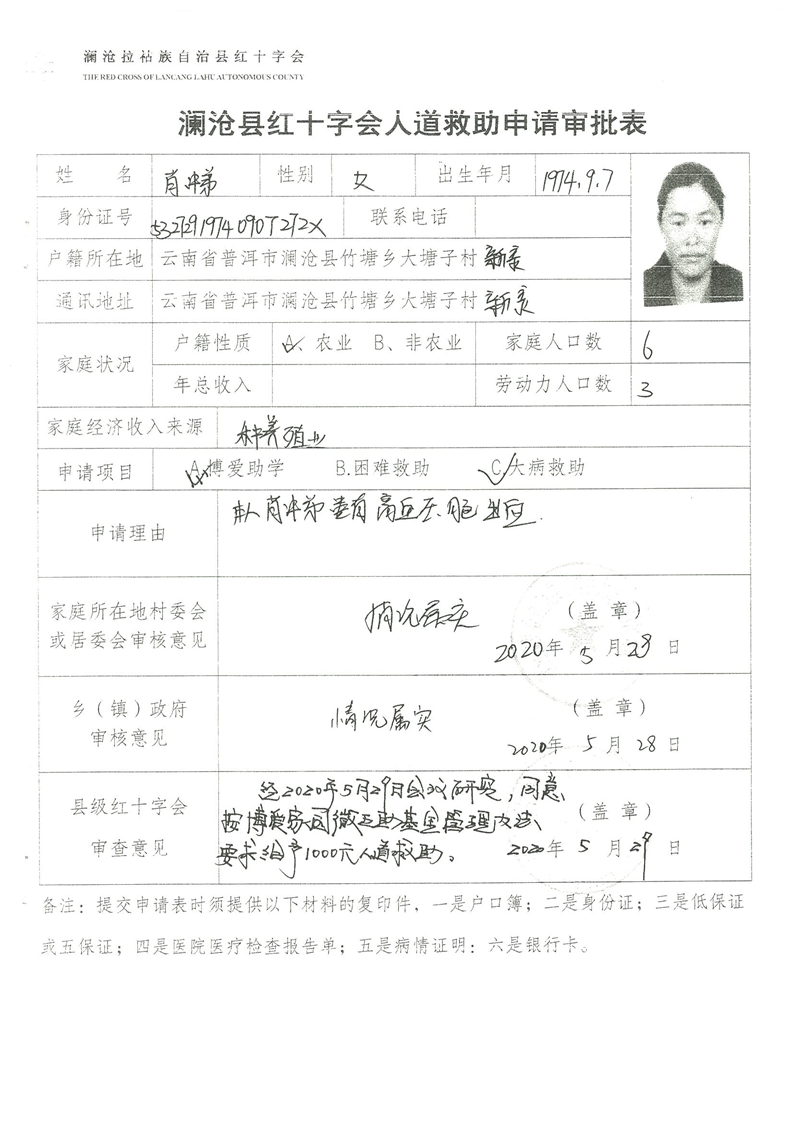 澜沧拉祜族自治县红十字会
THE RED CROSS OF LANCANG LAHU AUTONOMOUS COUNTY
澜沧县红十字会人道救助申请审批表
姓 名 肖 性别 女 出生年月 1974.9.7
身份证号 联系电话
户籍所在地 云南省普洱市澜沧县竹塘乡大塘子村
通讯地址 云南省普洱市澜沧县竹塘乡大塘子村
家庭状况 户籍性质 A、农业 B、非农业 家庭人口数 6
年总收入 劳动力人口数 3
家庭经济收入来源 种养殖业
申请项目 A.博爱助学 B.困难救助 C.大病救助
申请理由 本人肖 患有高血压
家庭所在地村委会
或居委会审核意见 情况属实 (盖 章)
2020年 5 月 28 日
乡(镇)政府
审核意见 情况属实 (盖 章)
2020年 5 月 28 日
县级红十字会
审查意见 经2020年5月29日会议研究,同意
按博爱家园 互助基金管理办法
要求给予1000元人道救助。 (盖 章)
2020年 5 月 29 日
备注:提交申请表时须提供以下材料的复印件,一是户口簿;二是身份证;三是低保证
或五保证;四是医院医疗检查报告单;五是病情证明;六是银行卡。